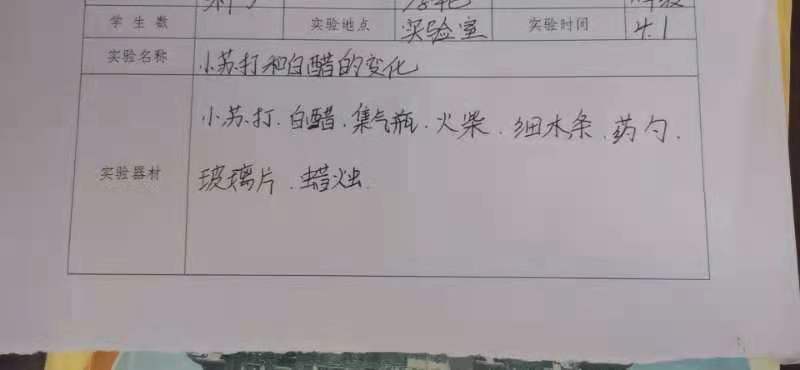 学生数 实验地点 实验室 实验时间 4.1
实验名称 小苏打和白醋的变化
小苏打、白醋、集气瓶、火柴、细木条、药勺、
实验器材 玻璃片、蜡烛